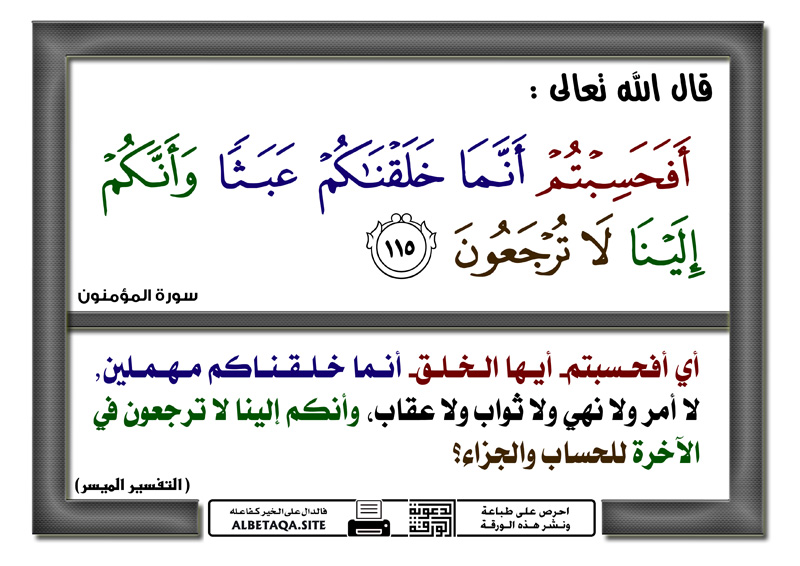 قال الله تعالى :
أَفَحَسِبْتُمْ أَنَّمَا خَلَقْنَٰكُمْ عَبَثًا وَأَنَّكُمْ
إِلَيْنَا لَا تُرْجَعُونَ ١١٥
سورة المؤمنون
أي أفحسبتم۔ أيها الخلق۔ أنما خلقناكم مهملين,
لا أمر ولا نهي ولا ثواب ولا عقاب، وأنكم إلينا لا ترجعون في
الآخرة للحساب والجزاء؟
(التفسير الميسر)
احرص على طباعة
ونشر هذه الورقة
الورقة
الدعوية
فالدال على الخير كفاعله
ALBETAQA.SITE